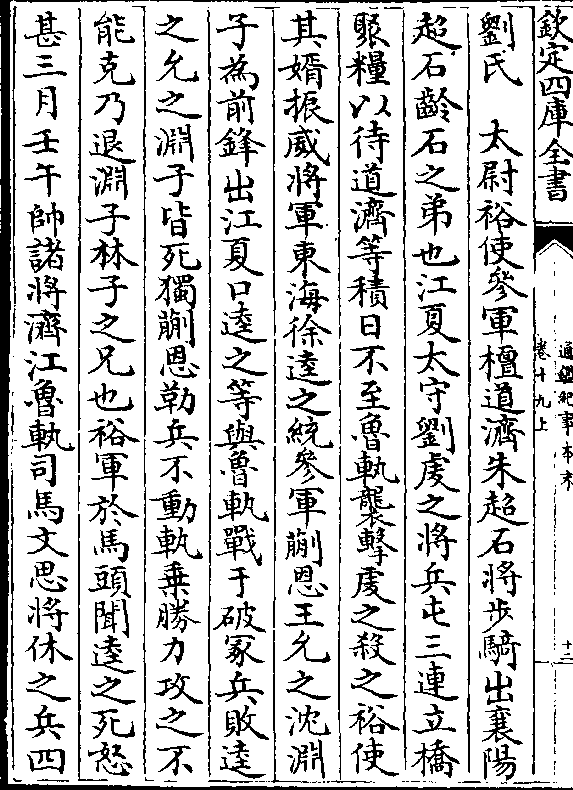 欽定四庫全書
通鑑紀事本末
卷十九上
十二
劉氏　太尉裕使參軍檀道濟朱超石將步騎出襄陽
超石齡石之弟也江夏太守劉虔之將兵屯三連立橋
聚糧以待道濟等積日不至魯軌襲擊虔之殺之裕使
其婿振威將軍東海徐逵之統參軍蒯恩王允之沈淵
子為前鋒出江夏口逵之等與魯軌戰于破冢兵敗逵
之允之淵子皆死獨蒯恩勒兵不動軌乗勝力攻之不
能克乃退淵子林子之兄也裕軍於馬頭聞逵之死怒
甚三月壬午帥諸將濟江魯軌司馬文思將休之兵四